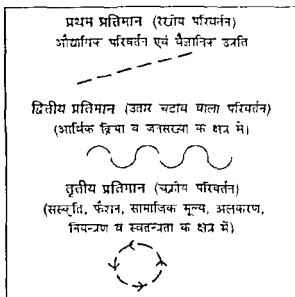 प्रथम प्रतिमान (रेखीय परिवर्तन)
औद्योगिक परिवर्तन एवं वैज्ञानिक उन्नति
द्वितीय प्रतिमान (उतार चढाव वाला परिवर्तन)
(आर्थिक क्रिया व जनसख्या क क्षत्र मे)
तृतीय प्रतिमान (चक्रीय परिवर्तन)
(सस्कृति, फैशन, सामाजिक मूल्य, अलकरण,
नियन्त्रण व स्वतन्त्रता क क्षत्र में)